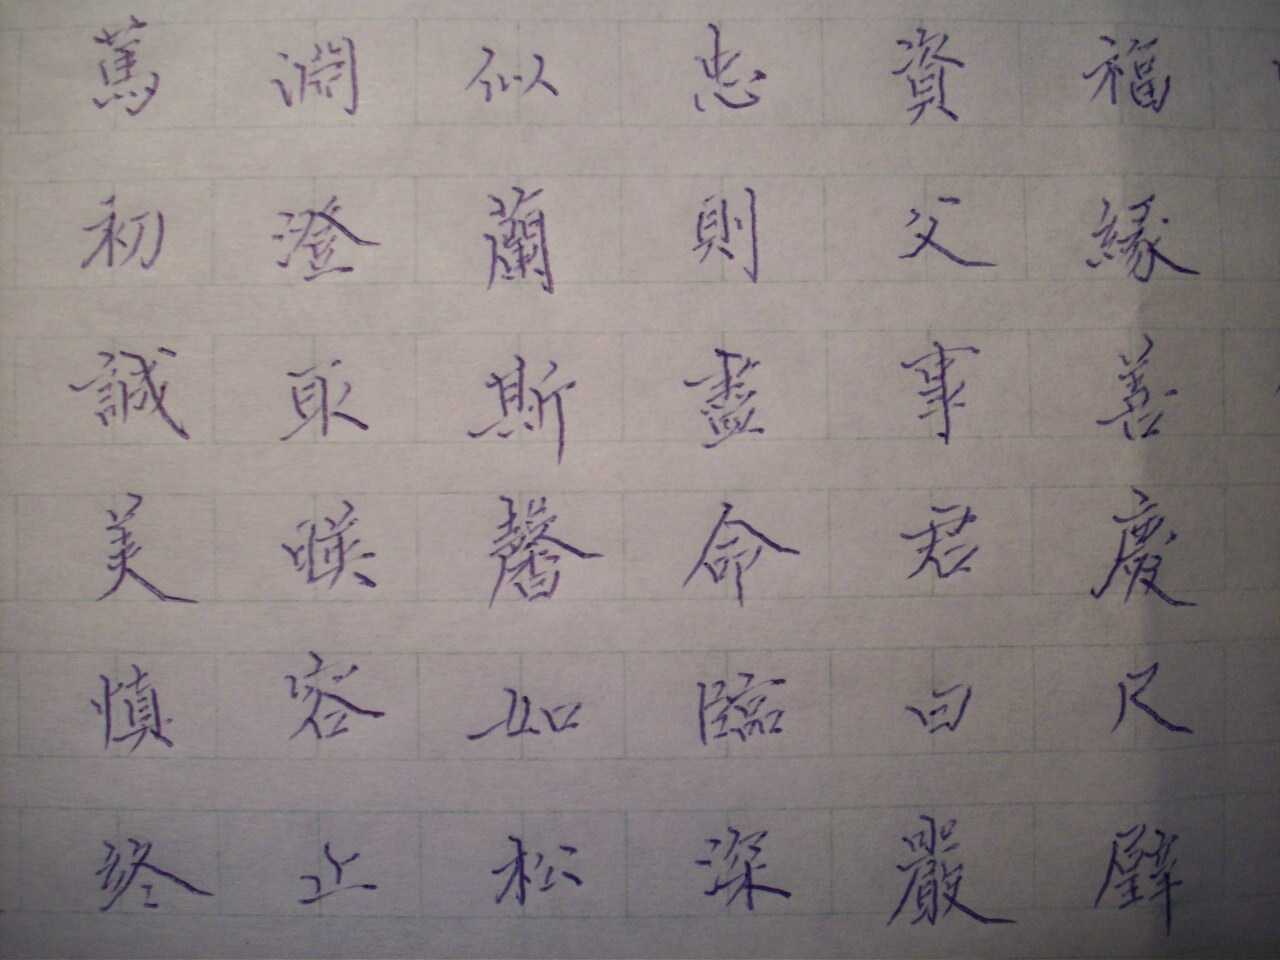 福緣善慶尺璧
資父事君曰嚴
忠則盡命臨深
似蘭斯馨如松
淵澄取暎容止
篤初誠美慎終